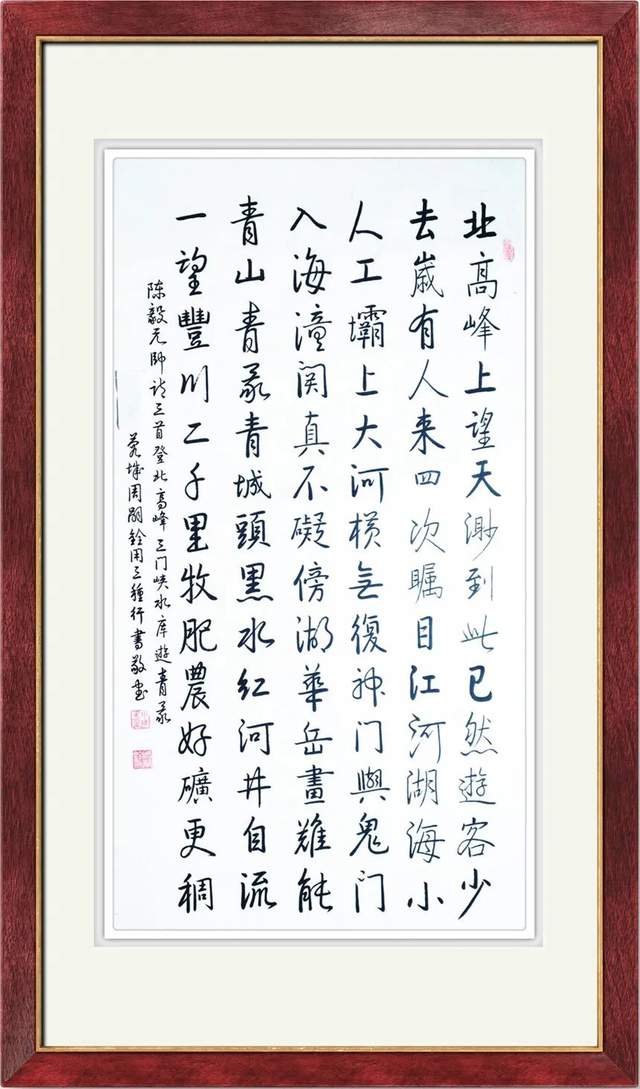 北高峰上望天渺到此已然遊客少
去歲有人来四次瞩目江河湖海小
人工壩上大河横无復神门與鬼门
入海潼関真不礙傍湖華岳畫難能
青山青冢青城頭黑水红河井自流
一望豐川二千里牧肥農好礦更稠
陈毅元帥诗三首登北高峰三门峡水库遊青冢
芜城周嗣銓用三種行書敬書